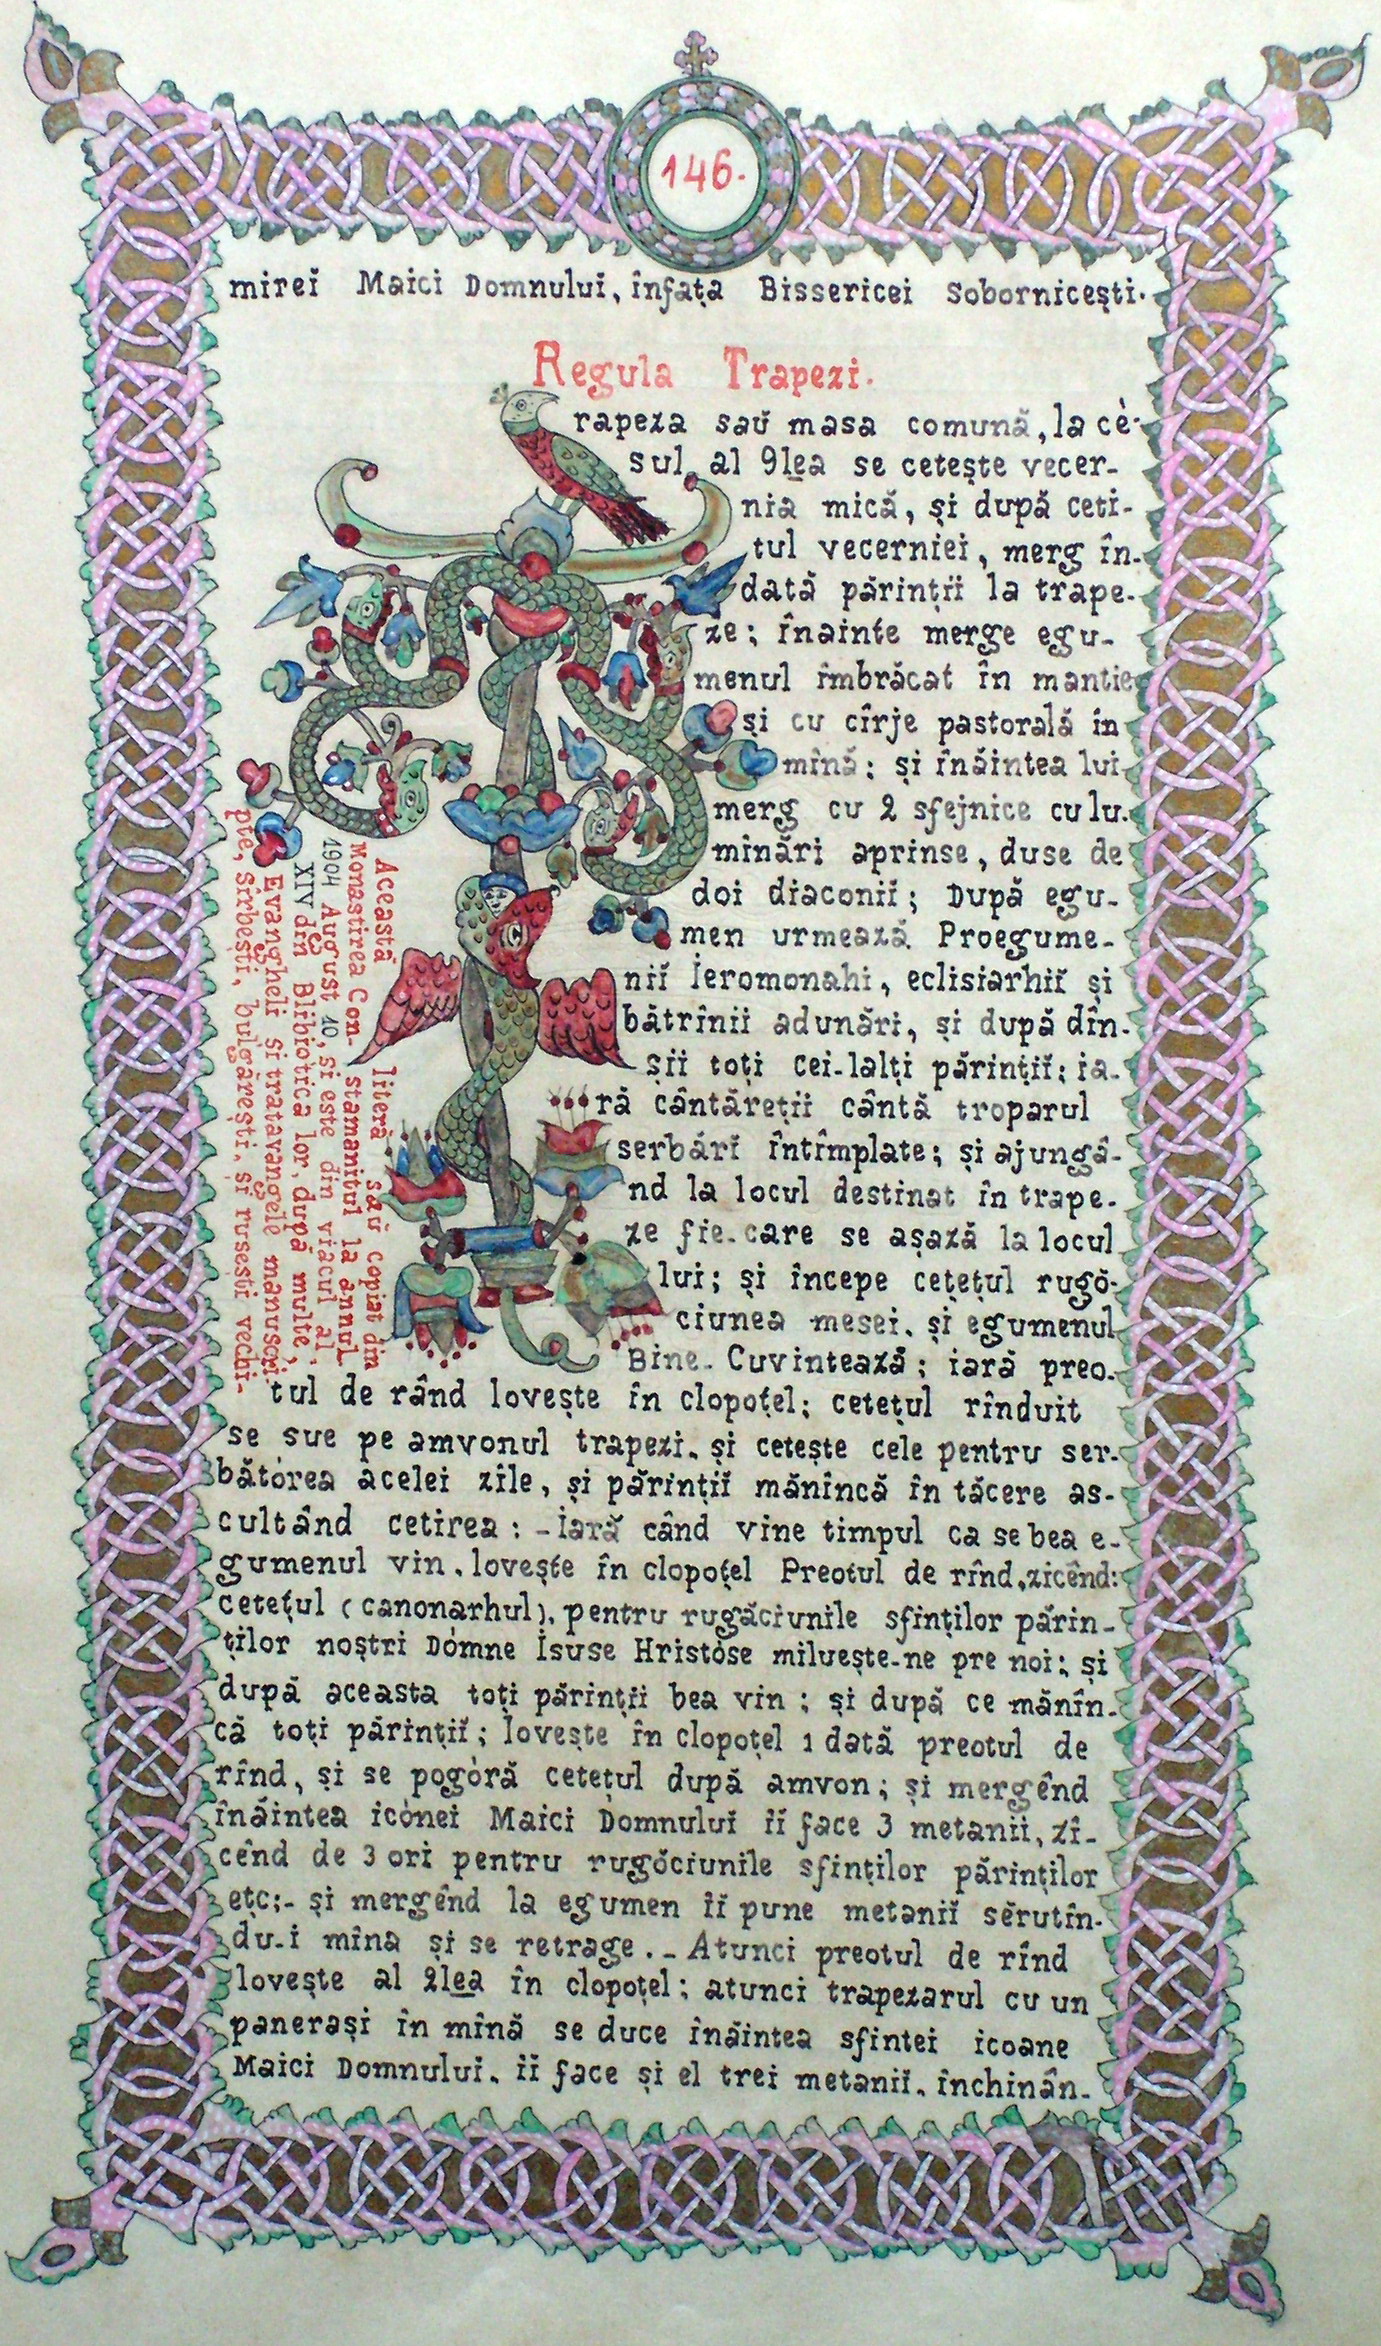 146.
mireĭ Maici Domnuluĭ, înfața Bissericei Sobornicești.
Regula Trapezi.
rapeza saŭ masa comună, la cè-
sul, al 9lea se cetește vecer-
nia mică, și după ceti-
tul vecerniei, merg în-
dată părințĭi la trape-
ze; înainte merge egu-
menul îmbrăcat în mantie
și cu cîrje pastorală în
mînă; și înăintea lui
merg cu 2 sfejnice cu lu-
minări aprinse, duse de
doi diaconiĭ; După egu-
men urmează Proegume-
niĭ Ieromonahi, eclisiarhiĭ și
bătrînii adunări, și după dîn-
șii toți cei-lalți părințiĭ; ia-
ră cântărețiĭ cântă troparul
serbări întîmplate; și ajungâ-
nd la locul destinat în trape-
ze fie-care se așază la locul
lui; și începe cetețul rugŏ-
ciunea mesei, și egumenul
Bine-Cuvintează; iară preo-
tul de rând lovește în clopoțel; cetețul rînduit
se sue pe amvonul trapezi, și cetește cele pentru ser-
bătórea acelei zîle, și părințiĭ mănîncă în tăcere as-
cultând cetirea: - Iară când vine timpul ca se bea e-
gumenul vin, lovește în clopoțel Preotul de rînd, zicênd:
cetețul (canonarhul), pentru rugăciunile sfinților părin-
ților noștri Dómne Isuse Hristóse miluește-ne pre noi; și
după aceasta toți părințĭi bea vin; și după ce mănîn-
că toți părințiĭ; lovește în clopoțel 1 dată preotul de
rînd, și se pogóră cetețul după amvon; și mergênd
înăintea icónei Maici Domnuluĭ ĭĭ face 3 metanii, zî-
cênd de 3 ori pentru rugŏciunile sfinților părinților
etc:- și mergênd la egumen ĭĭ pune metaniĭ sĕrutîn-
du-i mîna și se retrage.- Atunci preotul de rînd
lovește al 2lea în clopoțel; atunci trapezarul cu un
panerași în mînă se duce înăintea sfintei icoane
Maici Domnuluĭ, ĭĭ face și el trei metaniĭ, închinân-
Această literă saŭ copiat din
Monastirea Con-stamanitul la annul
1904 August 10, și este din viacul al
XIV din Blibiotica lor, după multe,
Evangheli și tratavangele mănuscri-
pte, sîrbești, bulgărești, și rusești vechi-